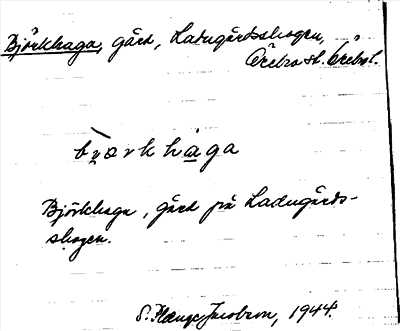 Björkhaga, gård, Ladugårdsskogen,
Örebro sk. Örebro l.
bjørkhaga
Björkhaga, gård på Ladugårds-
skogen.
S. Hænger Jacobson, 1944.